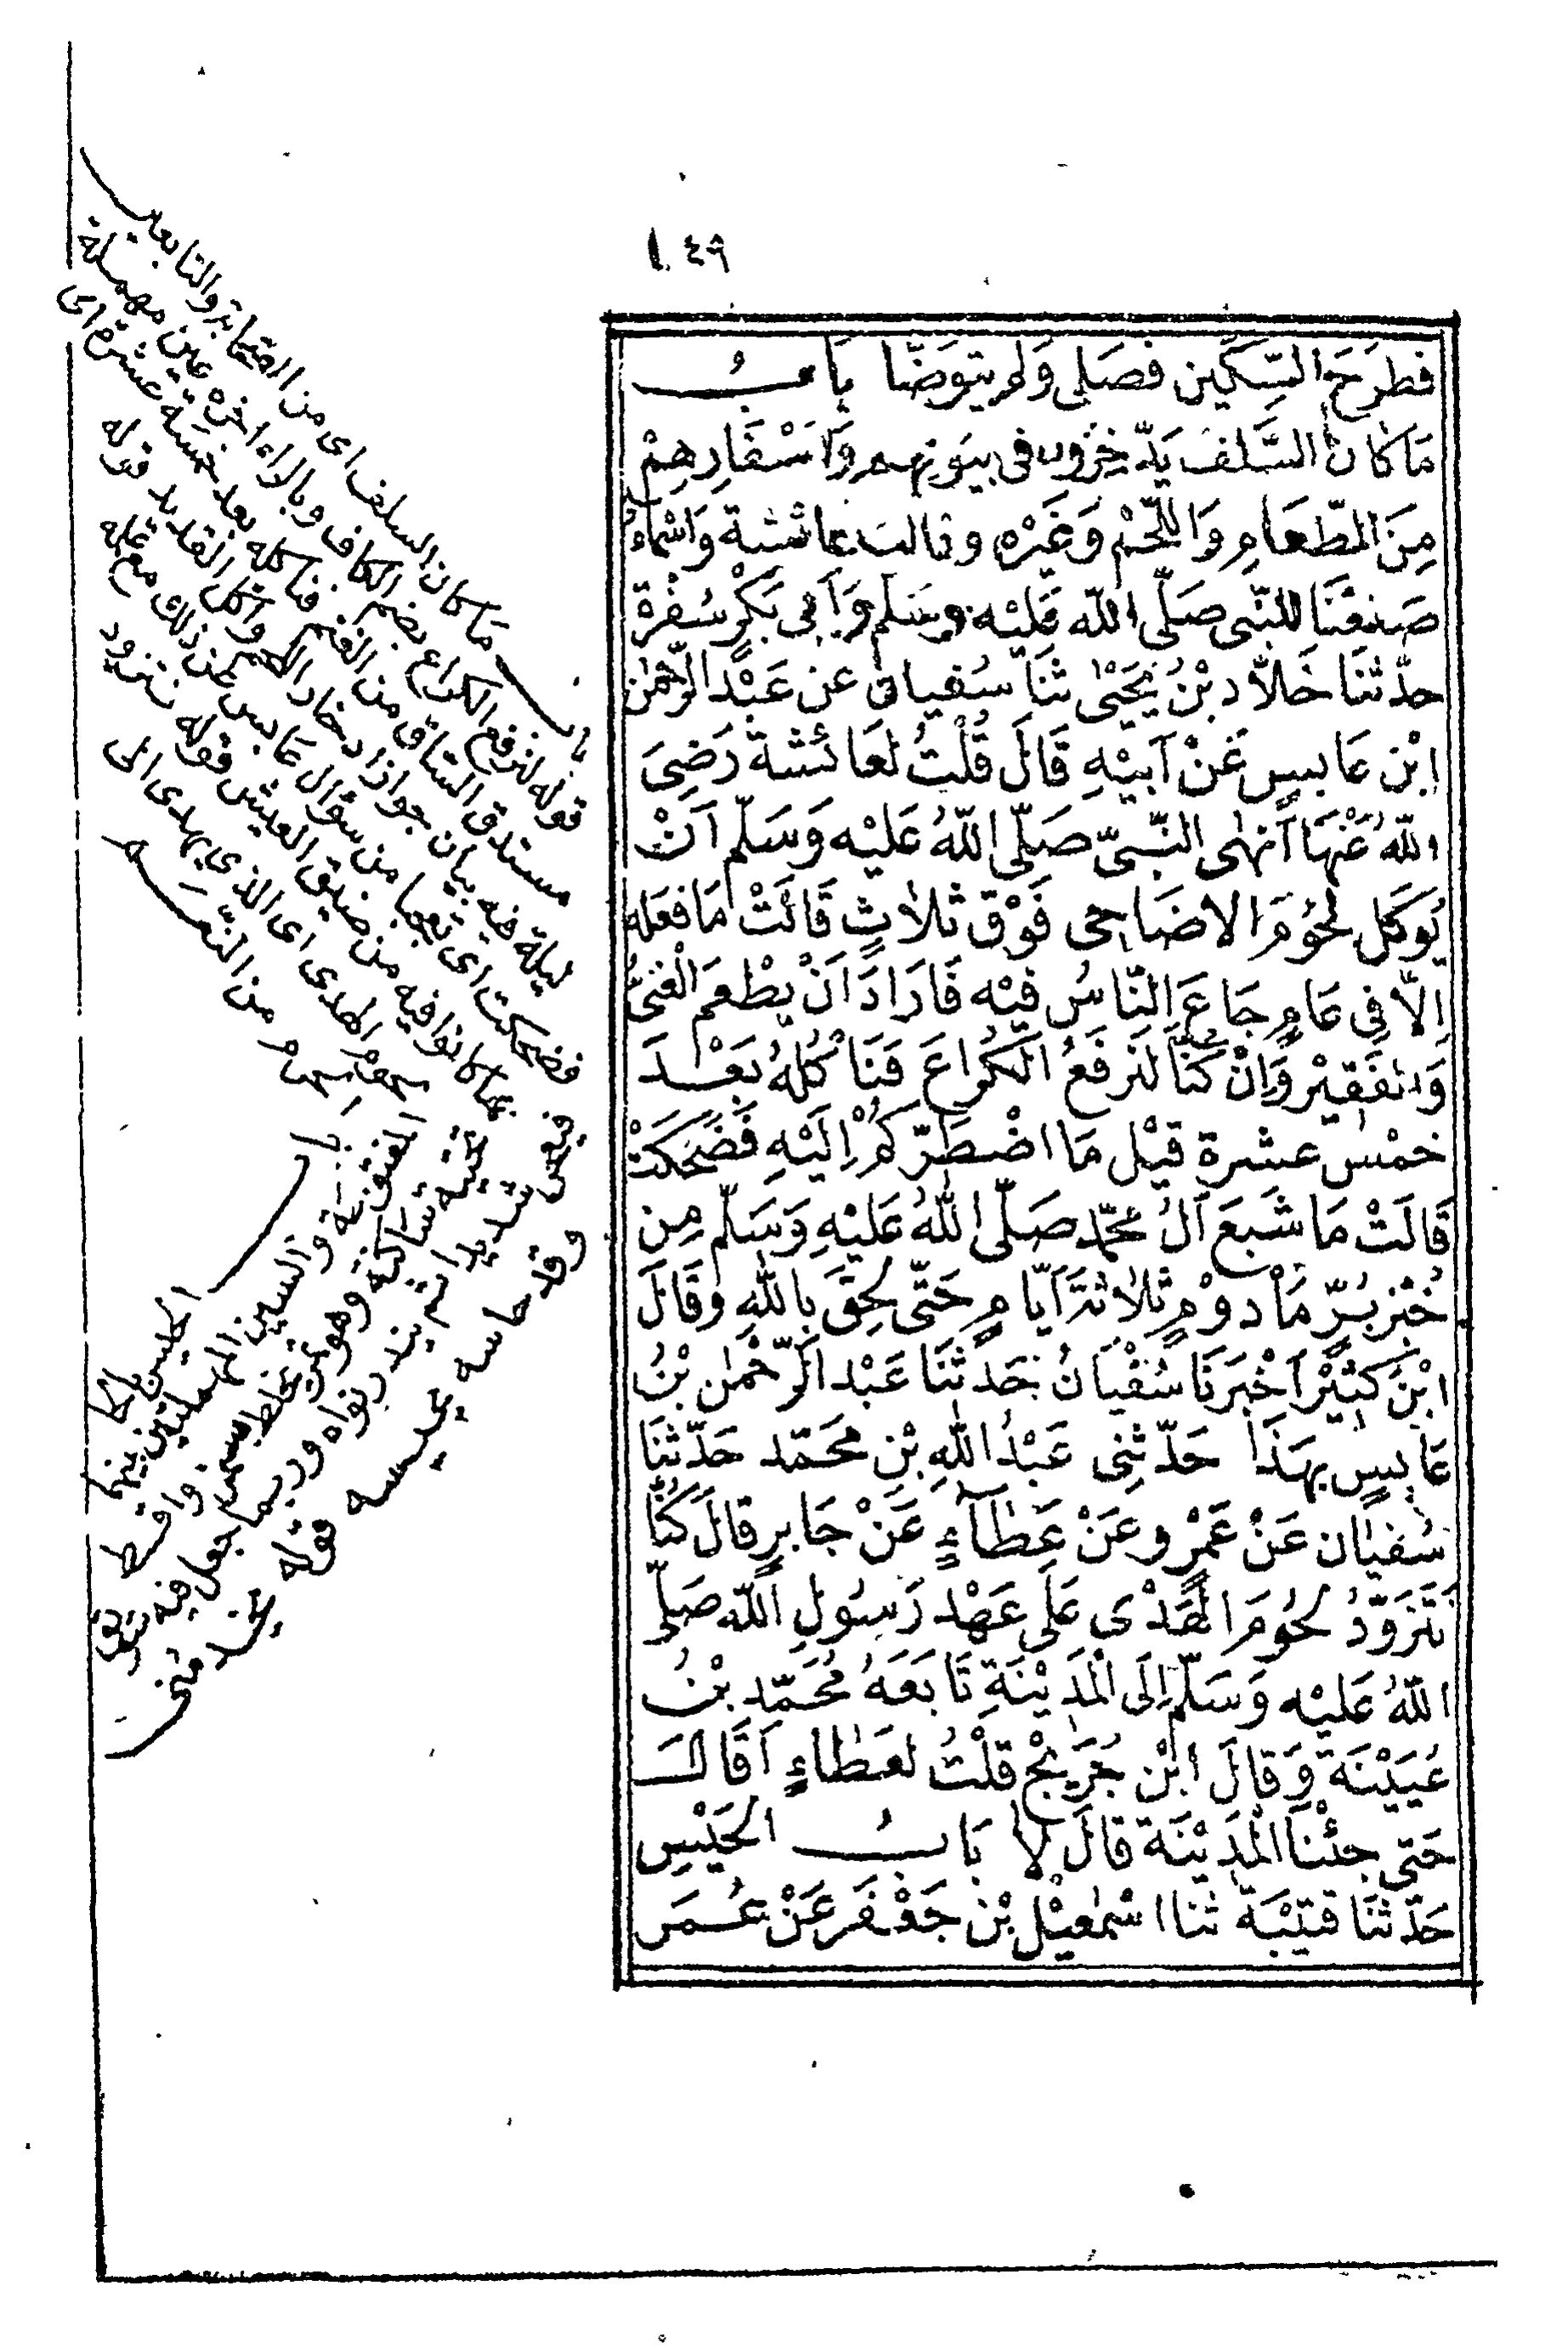 ١٤٩
فَطَرَحَ السِّكِّين فَصَلَى وَلم يَتَوَضَّا بَابُ
مَا كَانَ السَّلَفُ يَدّخِرُون فى بيَوتِهم وَاَسْفَارِهِمْ
مِنَ الطّعَامِ وَاللّحْمِ وَغَيْرِهِ وقالت عائشة وَاَسْمَاءُ
صَنعْنَا للنّبى صَلّى الله عَلَيْهِ وسَلّم وَاَبى بَكْرٍ سُفْرة
حدّثنَا خَلاّد بْنُ يَحْيَىٰ ثنَا سُفيان عن عَبْد الرّحْمٰن
ابْن عَابسٍ عَنْ اَبيْهِ قَالَ قُلْتُ لعَائشة رَضِىَ
اللّهُ عَنْهَا اَنَهٰى النّبىّ صَلّى اللّهُ عَلَيْه وَسَلّم اَنْ
يُوكَل لحُوُمَ الاضَاحى فَوْق ثلاثٍ قَالَتْ مَا فعَله
اِلاّ فى عَامٍ جَاعَ النّاسُ فيْه فَارَادَ اَنْ يطْعمَ الْغَنىُّ
وَالفَقيْر وَاِنْ كُنّا لَنرفَعُ الكُرَاعَ فنَاْكُلهُ بَعْدَ
خمْس عشرة قيْل مَا اضْطَرّكُمْ اِلَيْهِ فَضَحِكَتْ
قَالَتْ مَا شَبعَ آلُ محمّد صَلّى اللّهُ عَلَيْهِ وَسَلّم مِن
خُبْز بُرٍّ مَاْدوْمٍ ثلاثةَ اَيّامٍ حَتّى لحِقَ بِاللّهِ وَقَالَ
ابْنُ كثيْر اَخْبَرَنَا سُفْيَانُ حَدثنَا عَبْد الرّحْمٰن بْنُ
عَابسٍ بهَذَا حَدّثنِى عَبْدُ اللّهِ بْنِ محَمّد حَدّثنَا
سُفيَان عَنْ عَمْرٍو عَنْ عَطَآءٍ عَنْ جَابرٍ قالَ كُنّا
نَتَزوّدُ لحُومَ الهَدْىِ عَلى عَهْد رَسُولِ اللّه صَلّى
اللّهُ عَليْه وَسَلّم اِلَى الْمَديْنَةِ تَابَعَهُ مُحَمّد بْنُ
عُيَيْنَة وَقالَ ابْن جُرَيْج قلْتُ لعَطاءٍ اَقَالَ
حَتى جئْنَا الْمَديْنَة قالَ لا بَابُ الحَيْسِ
حَدّثنَا قتَيْبَة ثنا اسْمٰعيْل بْن جَعْفَر عَنْ عُمَر
باب مَا كان السلف اى من الصحابة والتابعين
قوله لنرفع الكراع بضم الكاف وبالراء اخره عين مهملة
مستدق الساق من الغنم فناكله بعد خمسة عشرة اى
ليلة فيه بيان جواز ادخار اللحم واكل القديد قوله
فضحكت اى تعجبا من سؤال عابس عن ذلك مع علمه
بما كانوا فيه من ضيق العيش قوله نتزود
لحوم الهدى اى الذى يهدى الى
الحرم من النعم
باب الحيس بالحاء
المفتوحة والسين المهملتين بينهما
تحتية ساكنة وهو تمر يخلط بسمن واقط
فيعجن شديدا ثم يندر نواه وربما جعل فيه سويق
وقد حاسه يحيسه قوله